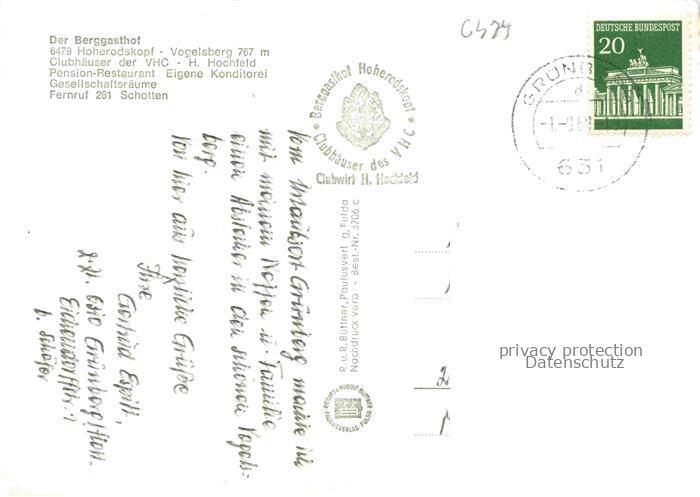 Der Berggasthof
6479 Hoherodskopf - Vogelsberg 767 m
Clubhäuser der VHC - H. Hochfeld
Pension-Restaurant Eigene Konditorei
Gesellschaftsräume
Fernruf 261 Schotten
C479
DEUTSCHE BUNDESPOST
20
GRÜNB
d
-1.-9.69
631
* Berggasthof Hoherodskopf *
Clubhäuser des VHC
Clubwirt H. Hochfeld
Vom Urlaubsort Grünberg machte ich
mit meinem Neffen u. Familie
einen Abstecher in den schönen Vogels-
berg.
Von hier aus herzliche Grüße
Ihre
Gertrud
z.Zt. 6310 Grünberg/Hess.
Eichendorffstr. 1
b. Schäfer
R. u. R. Büttner, Paulusverl g, Fulda
Nachdruck verb. - Best.-Nr. 5706 c
RICHARD & RUDOLF BÜTTNER
PAULUSVERLAG · FULDA
privacy protection
Datenschutz